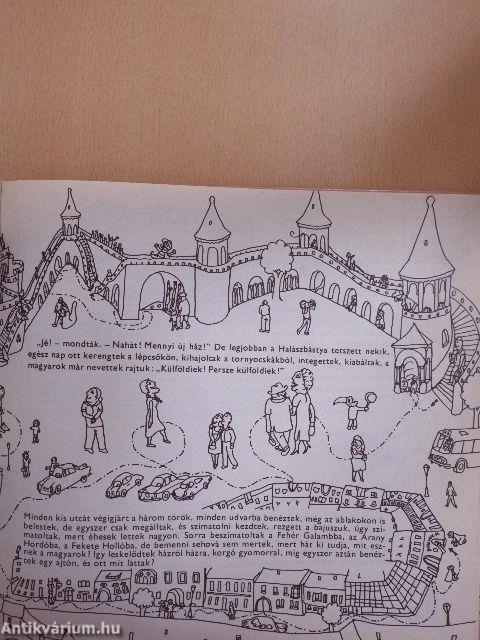 „Jé! – mondták. – Nahát! Mennyi új ház!" De legjobban a Halászbástya tetszett nekik,
egész nap ott kerengtek a lépcsőkön, kihajoltak a tornyocskákból, integettek, kiabáltak, a
magyarok már nevettek rajtuk: „Külföldiek! Persze külföldiek!"
Minden kis utcát végigjárt a három török, minden udvarba benéztek, még az ablakokon is
belestek, de egyszer csak megálltak, és szimatolni kezdtek, rezgett a bajuszuk, úgy szi-
matoltak, mert éhesek lettek nagyon. Sorra beszimatoltak a Fehér Galambba, az Arany
Hordóba, a Fekete Hollóba, de bemenni sehová sem mertek, mert hát ki tudja, mit esz-
nek a magyarok! Így leskelődtek házról házra, korgó gyomorral, míg egyszer aztán benéz-
tek egy ajtón, és ott mit láttak?
Antikvárium.hu